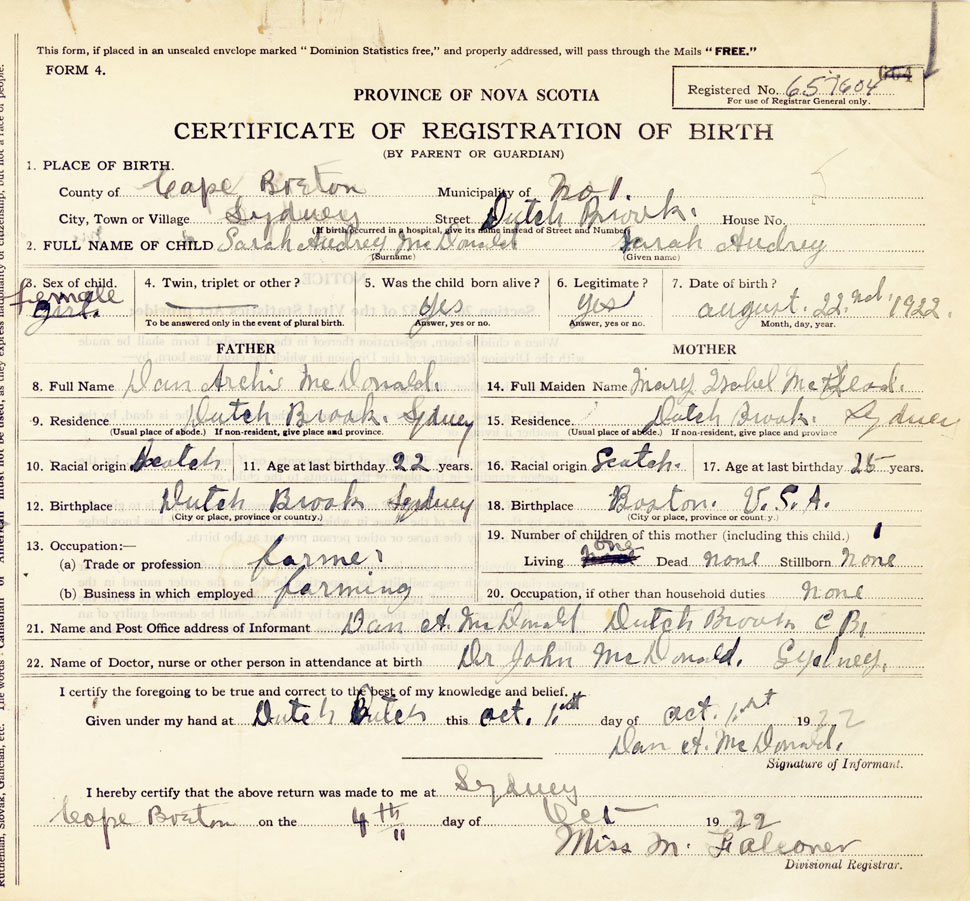 This form, if placed in an unsealed envelope marked "Dominion Statistics free," and properly addressed, will pass through the Mails "FREE."
FORM 4.
664
Registered No. 657604
For use of Registrar General only.
PROVINCE OF NOVA SCOTIA
CERTIFICATE OF REGISTRATION OF BIRTH
(BY PARENT OR GUARDIAN)
1. PLACE OF BIRTH.
County of Cape Breton Municipality of No 1.
City, Town or Village Sydney Street Dutch Brook. House No.
(If birth occurred in a hospital, give its name instead of Street and Number)
2. FULL NAME OF CHILD Sarah Audrey McDonald Sarah Audrey
(Surname) (Given name)
3. Sex of child. female girl.
4. Twin, triplet or other?
To be answered only in the event of plural birth.
5. Was the child born alive? yes
Answer, yes or no.
6. Legitimate? yes
Answer, yes or no.
7. Date of birth? august. 22nd. 1922.
Month, day, year.
FATHER
8. Full Name Dan Archi McDonald.
9. Residence Dutch Brook. Sydney
(Usual place of abode.) If non-resident, give place and province.
10. Racial origin Scotch 11. Age at last birthday 22 years.
12. Birthplace Dutch Brook Sydney
(City or place, province or country.)
13. Occupation:—
(a) Trade or profession farmer
(b) Business in which employed farming
MOTHER
14. Full Maiden Name Mary Isabel McLeod.
15. Residence Dutch Brook. Sydney
(Usual place of abode.) If non-resident, give place and province
16. Racial origin Scotch. 17. Age at last birthday 25 years.
18. Birthplace Boston. U.S.A.
(City or place, province or country.)
19. Number of children of this mother (including this child.) 1
Living none Dead none Stillborn None
20. Occupation, if other than household duties None
21. Name and Post Office address of Informant Dan A. McDonald Dutch Brook C B.
22. Name of Doctor, nurse or other person in attendance at birth Dr John McDonald. Sydney.
I certify the foregoing to be true and correct to the best of my knowledge and belief.
Given under my hand at Dutch this oct. day of oct. 1922
Dan A. McDonald.
Signature of Informant.
I hereby certify that the above return was made to me at Sydney
Cape Breton on the 4th day of Oct 1922
Miss M. Falconer
Divisional Registrar.